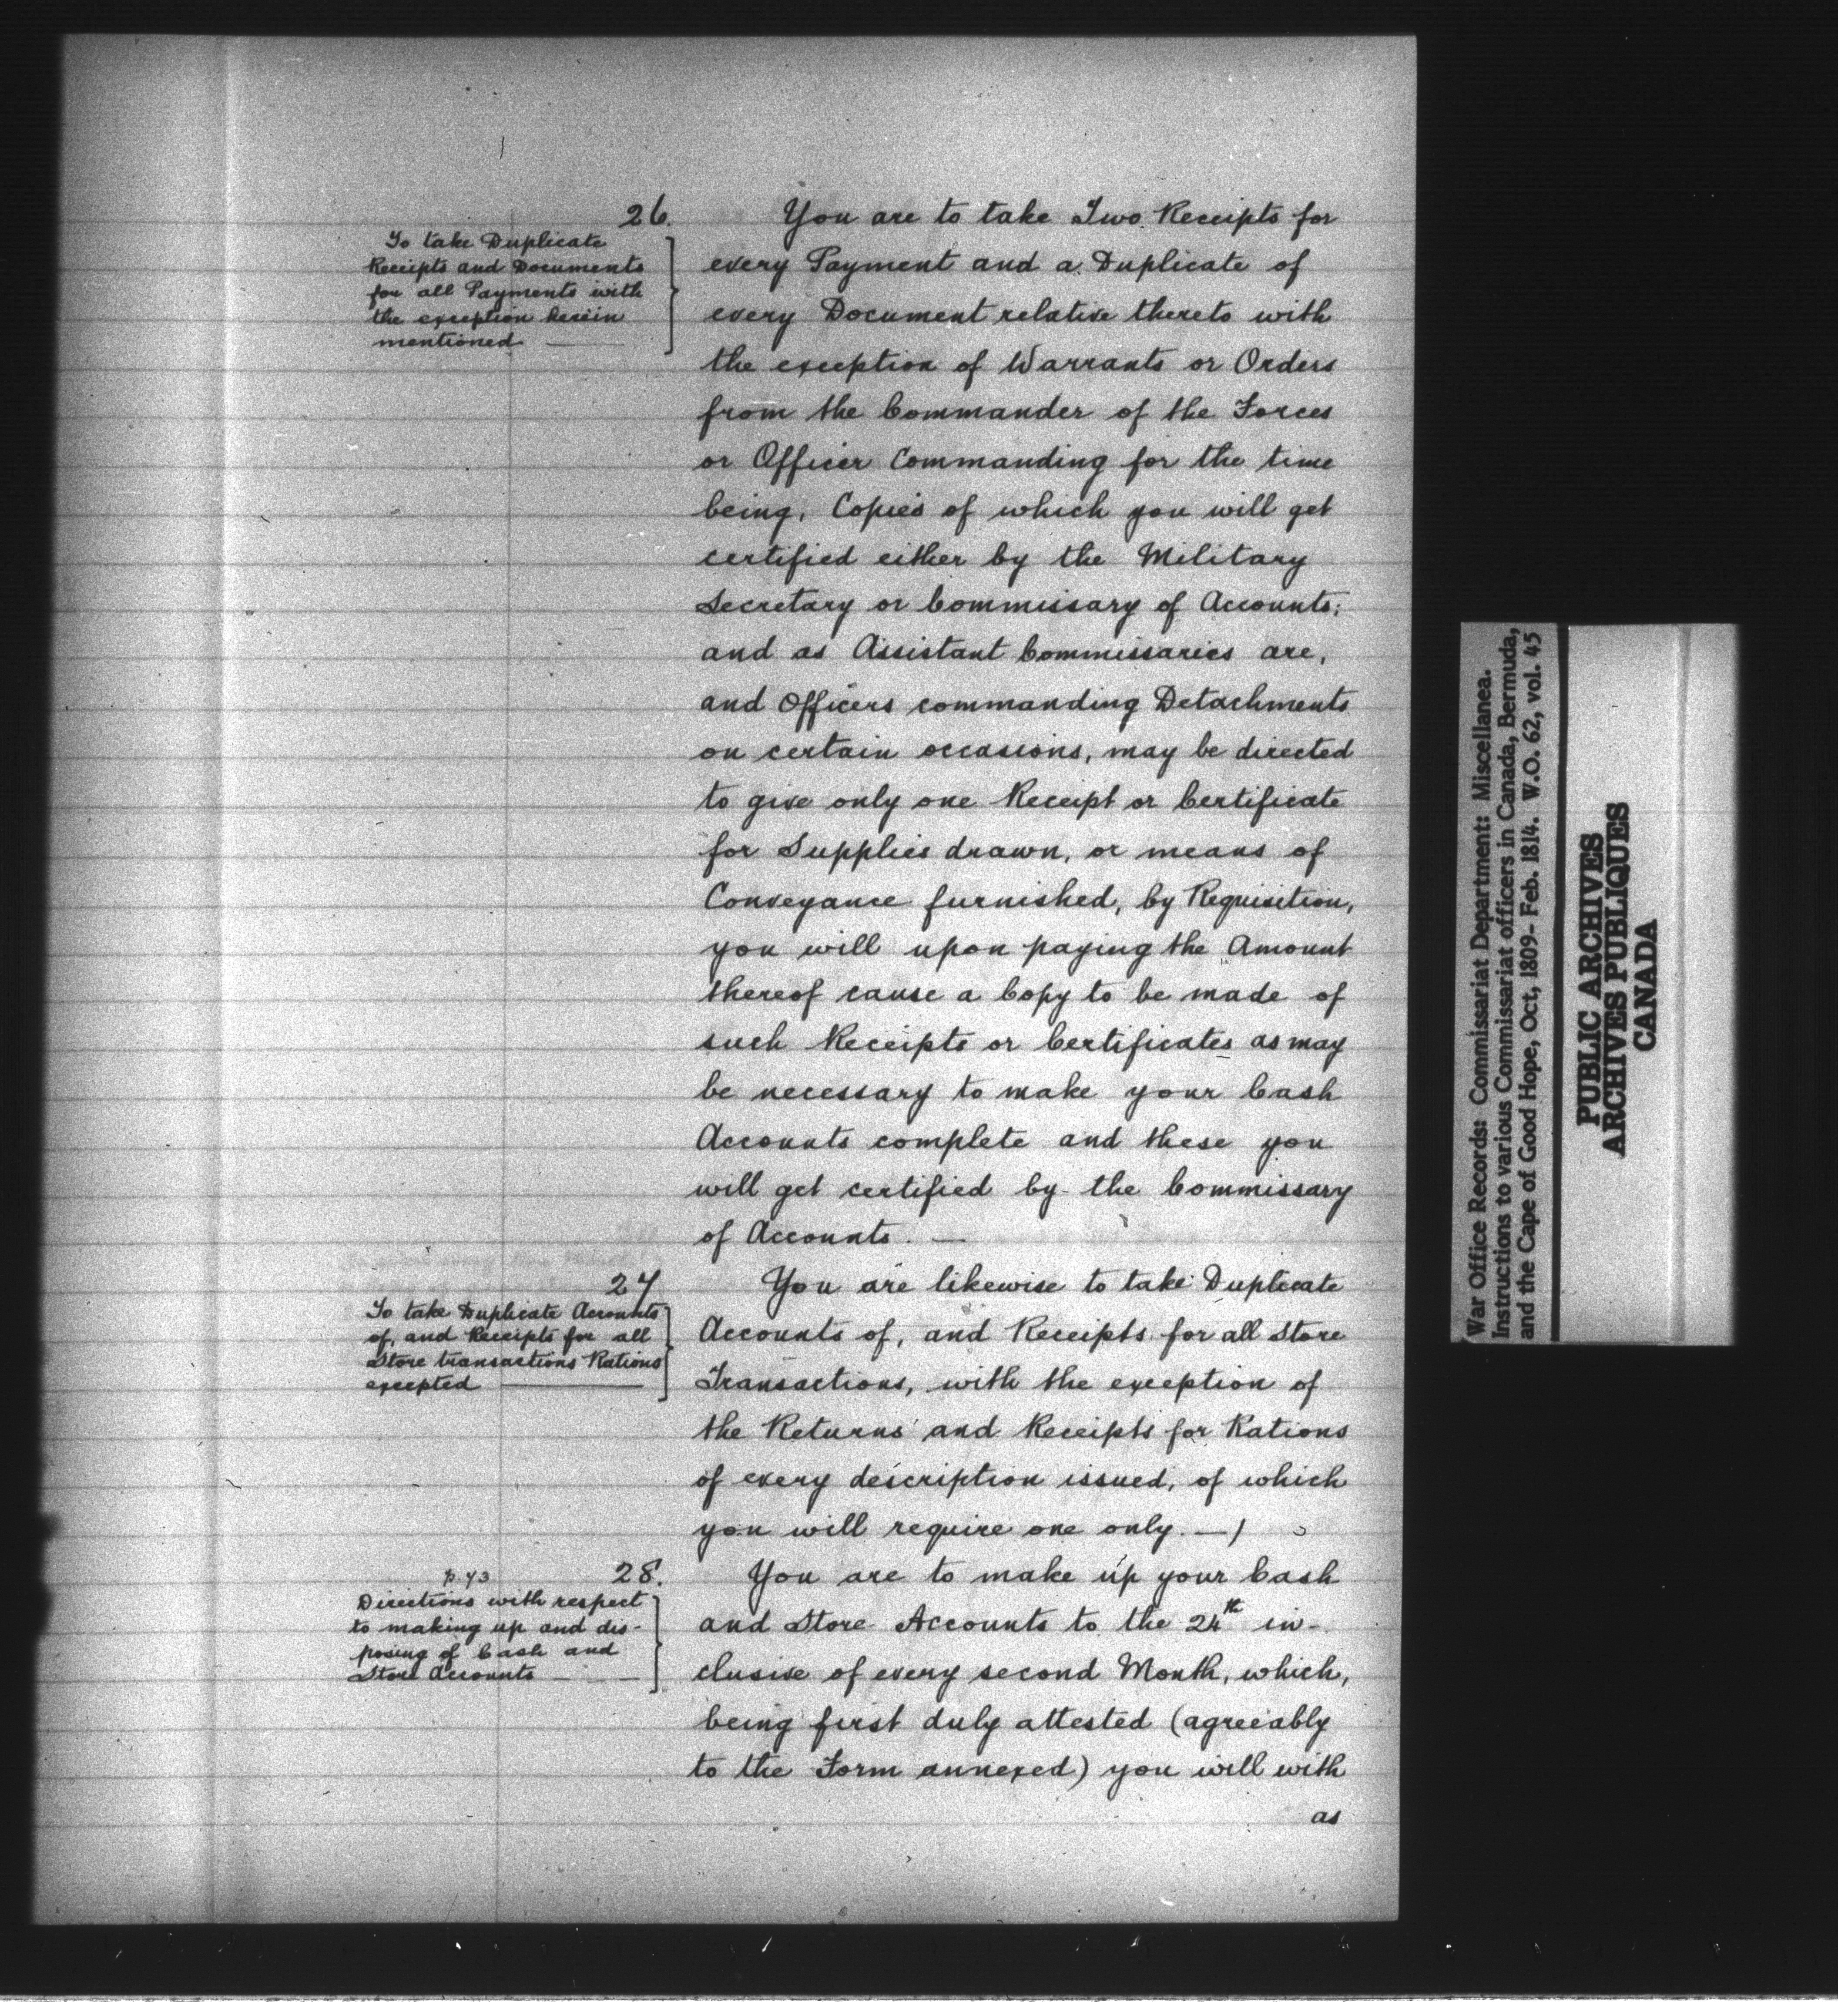 26.
To take Duplicate
Receipts and Documents
for all Payments with
the exception herein
mentioned
You are to take Two Receipts for
every Payment and a Duplicate of
every Document relative thereto with
the exception of Warrants or Orders
from the Commander of the Forces
or Officer Commanding for the time
being, Copies of which you will get
certified either by the Military
Secretary or Commissary of Accounts;
and as Assistant Commissaries are,
and Officers commanding Detachments
on certain occasions, may be directed
to give only one Receipt or Certificate
for Supplies drawn, or means of
Conveyance furnished, by Requisition,
you will upon paying the Amount
thereof cause a Copy to be made of
such Receipts or Certificates as may
be necessary to make your Cash
Accounts complete and these you
will get certified by the Commissary
of Accounts. —
27
To take Duplicate Accounts
of, and Receipts for all
Store transactions Rations
excepted
You are likewise to take Duplicate
Accounts of, and Receipts for all Store
Transactions, with the exception of
the Returns and Receipts for Rations
of every description issued, of which
you will require one only. —
p. 43
28.
Directions with respect
to making up and dis-
posing of Cash and
Store Accounts
You are to make up your Cash
and Store Accounts to the 24th in-
clusive of every second Month, which,
being first duly attested (agreeably
to the Form annexed) you will with
as
War Office Records: Commissariat Department: Miscellanea.
Instructions to various Commissariat officers in Canada, Bermuda,
and the Cape of Good Hope, Oct, 1809- Feb. 1814. W.O. 62, vol. 45
PUBLIC ARCHIVES
ARCHIVES PUBLIQUES
CANADA